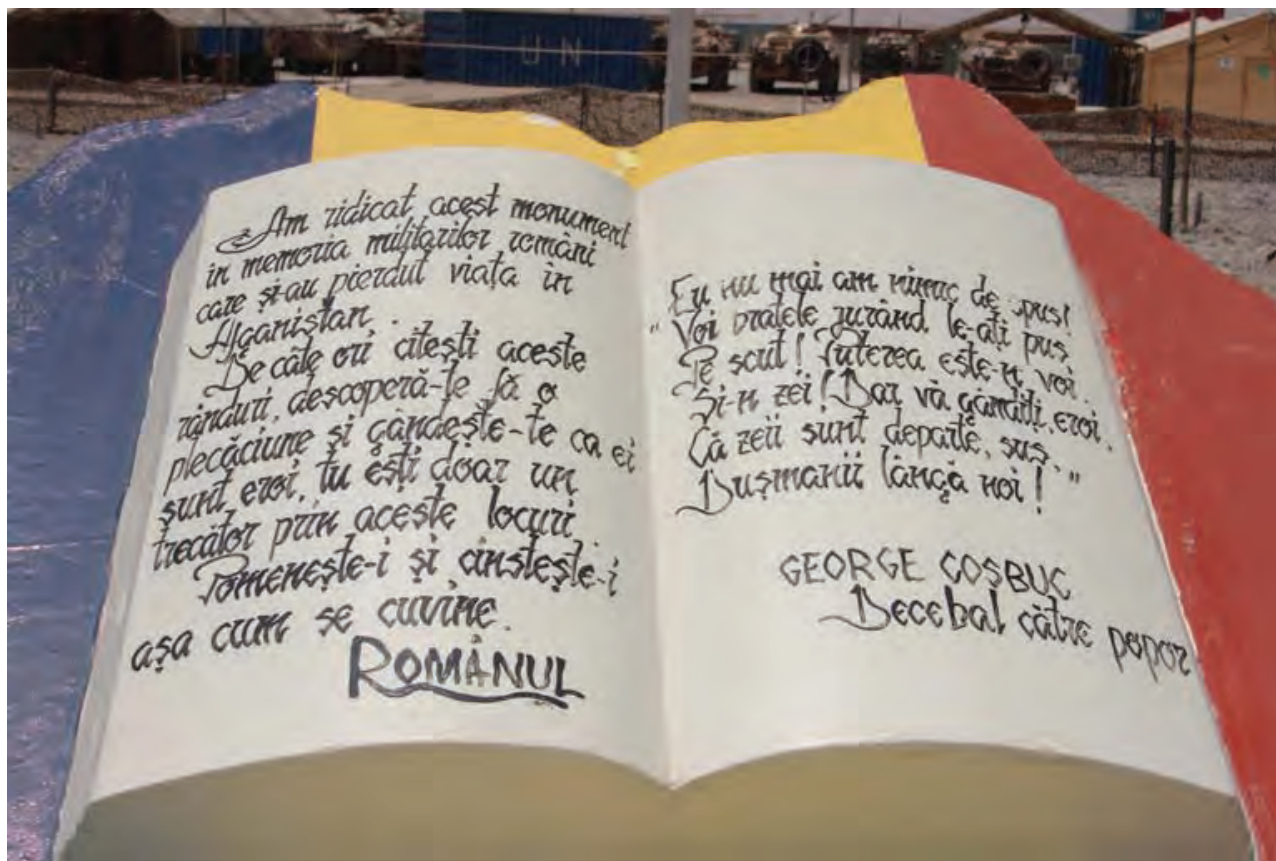 UN
Am ridicat acest monument
in memoria militarilor români
care și-au pierdut viața in
Afganistan.
De câte ori citești aceste
rânduri, descoperă-te, fă o
plecăciune și gândește-te ca ei
sunt eroi, tu ești doar un
trecător prin aceste locuri.
Pomenește-i și cinstește-i
așa cum se cuvine.
ROMÂNUL
Eu nu mai am nimic de spus!
"Voi brațele jurând le-ați pus
Pe scut! Puterea este-n voi
Și-n zei! Dar vă gândiți, eroi,
Că zeii sunt departe, sus,
Dușmanii lângă noi!"
GEORGE COȘBUC
Decebal către popor